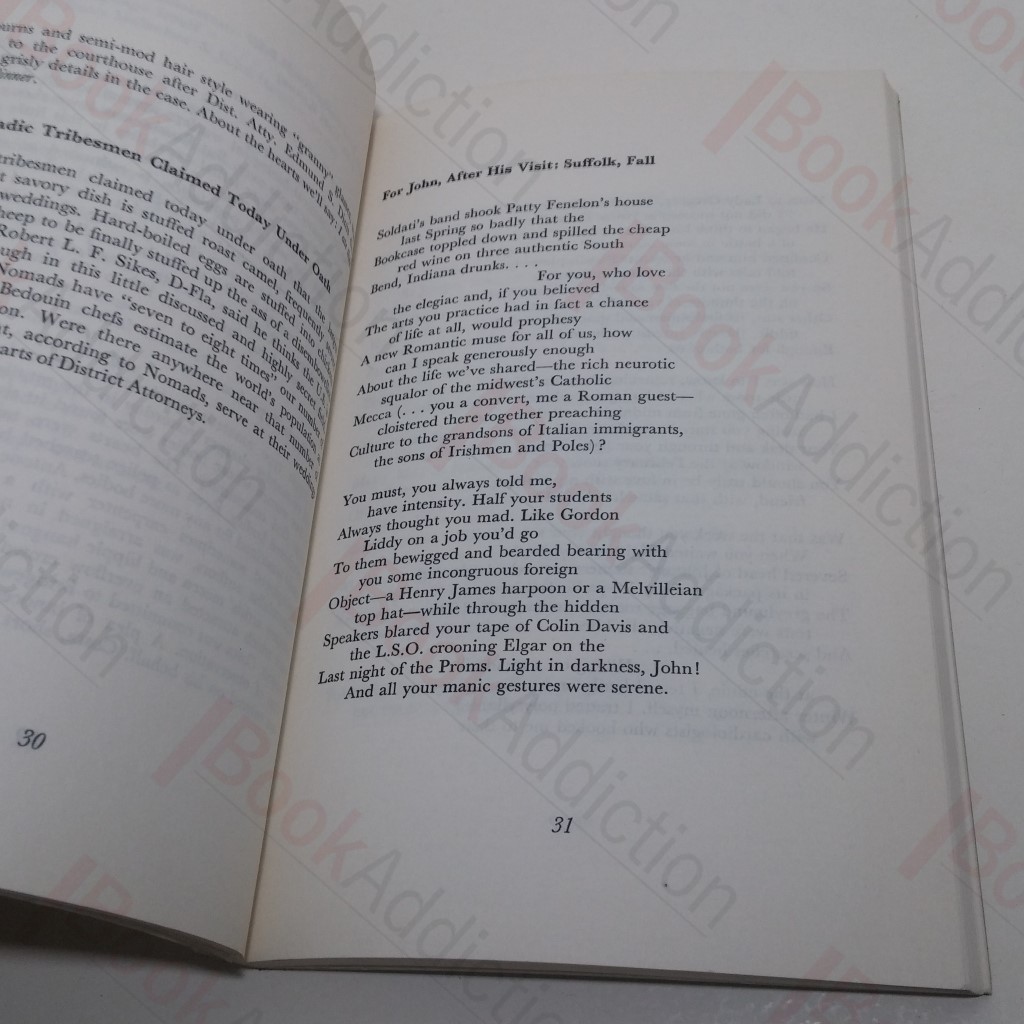 urns and semi-mod hair style wearing "granny"
to the courthouse after Dist. Atty. Edmund S.
grisly details in the case. About the hearts we'll say:
dinner.
adic Tribesmen Claimed Today Under Oath
tribesmen claimed today under oath that the
t savory dish is stuffed roast camel, frequently
weddings. Hard-boiled eggs are stuffed into
heep to be finally stuffed up the ass of a disembowel
Robert L. F. Sikes, D-Fla, said he thinks the U.S.
ugh in this little discussed and highly secret
Nomads have "seven to eight times" our number
Bedouin chefs estimate the world's population
on. Were there anywhere near that number
t, according to Nomads, serve at their wedding
arts of District Attorneys.
30
For John, After His Visit: Suffolk, Fall
Soldati's band shook Patty Fenelon's house
last Spring so badly that the
Bookcase toppled down and spilled the cheap
red wine on three authentic South
Bend, Indiana drunks. . . .
For you, who love
the elegiac and, if you believed
The arts you practice had in fact a chance
of life at all, would prophesy
A new Romantic muse for all of us, how
can I speak generously enough
About the life we've shared—the rich neurotic
squalor of the midwest's Catholic
Mecca (. . . you a convert, me a Roman guest—
cloistered there together preaching
Culture to the grandsons of Italian immigrants,
the sons of Irishmen and Poles) ?
You must, you always told me,
have intensity. Half your students
Always thought you mad. Like Gordon
Liddy on a job you'd go
To them bewigged and bearded bearing with
you some incongruous foreign
Object—a Henry James harpoon or a Melvilleian
top hat—while through the hidden
Speakers blared your tape of Colin Davis and
the L.S.O. crooning Elgar on the
Last night of the Proms. Light in darkness, John!
And all your manic gestures were serene.
31
BookAddiction
BookAddiction
BookAddiction
BookAddiction